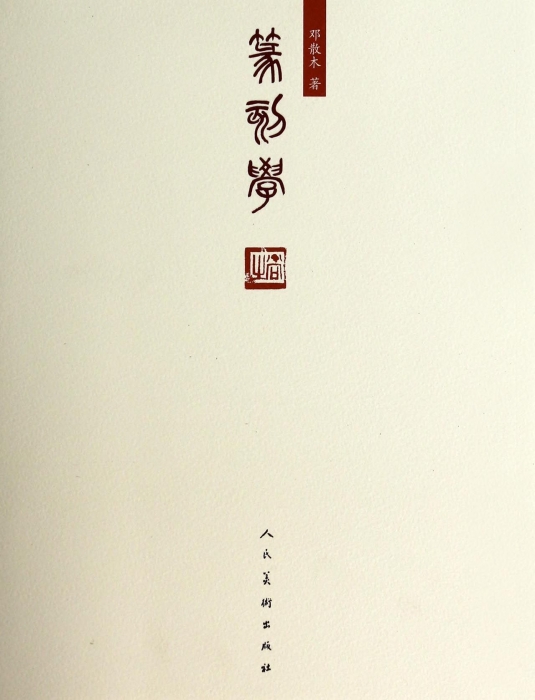 邓散木 著
篆刻學
人民美術出版社